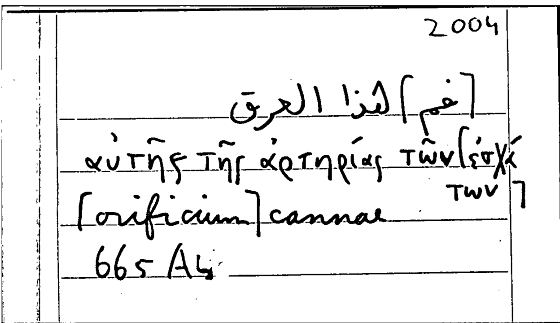 2004
[فم] لهذا العرق
αὐτῆς τῆς ἀρτηρίας τῶν [ἐσχά
των]
[orificium] cannae
665 A4